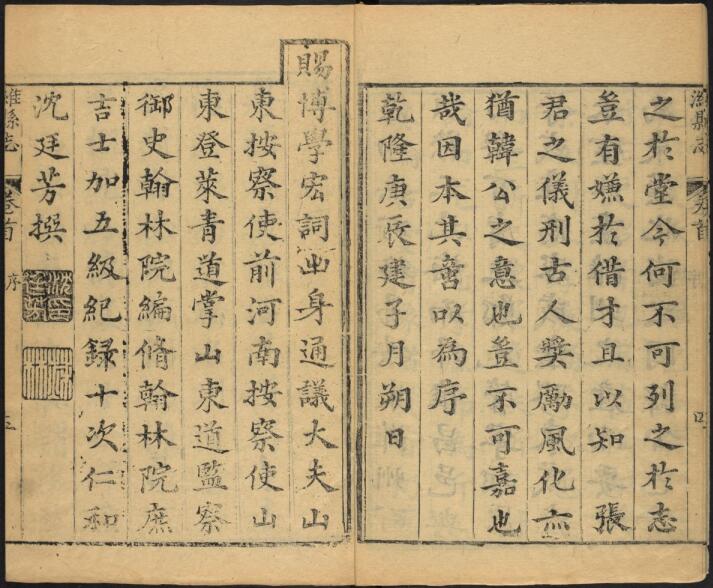 之扵堂今何不可列之扵志
豈有嫌扵借才且以知 張
君之儀刑古人奬勵風化亦
猶韓公之意也豈不可嘉也
哉因本其意以為序
乾隆庚辰建子月朔日
賜博學宏詞出身通議大夫山
東按察使前河南按察使山
東登萊青道掌山東道監察
御史翰林院編脩翰林院庶
吉士加五級紀録十次仁和
沈廷芳撰
濰縣志
卷首
序